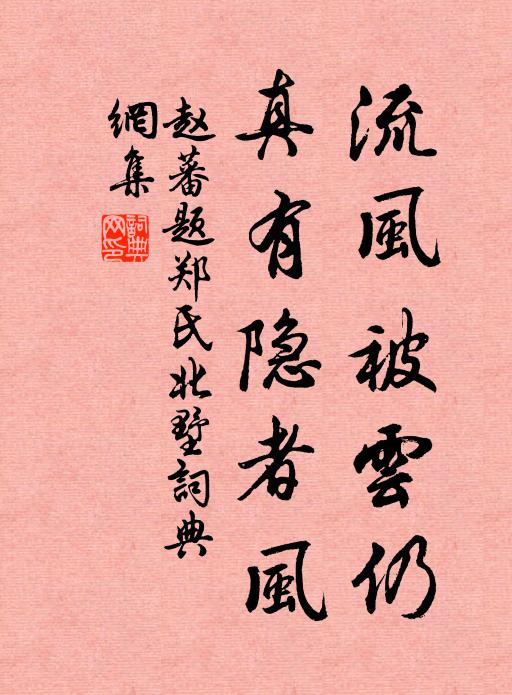 流風被雲仍
真有隐者風
赵蕃题郑氏北墅詞典
網集
詞典
网印